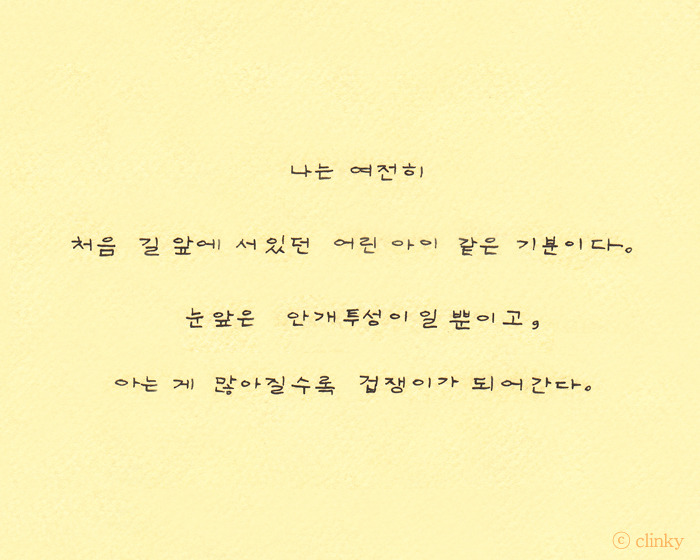 나는 여전히
처음 길 앞에 서있던 어린 아이 같은 기분이다.
눈앞은 안개투성이일 뿐이고,
아는 게 많아질수록 겁쟁이가 되어간다.
ⓒ clinky